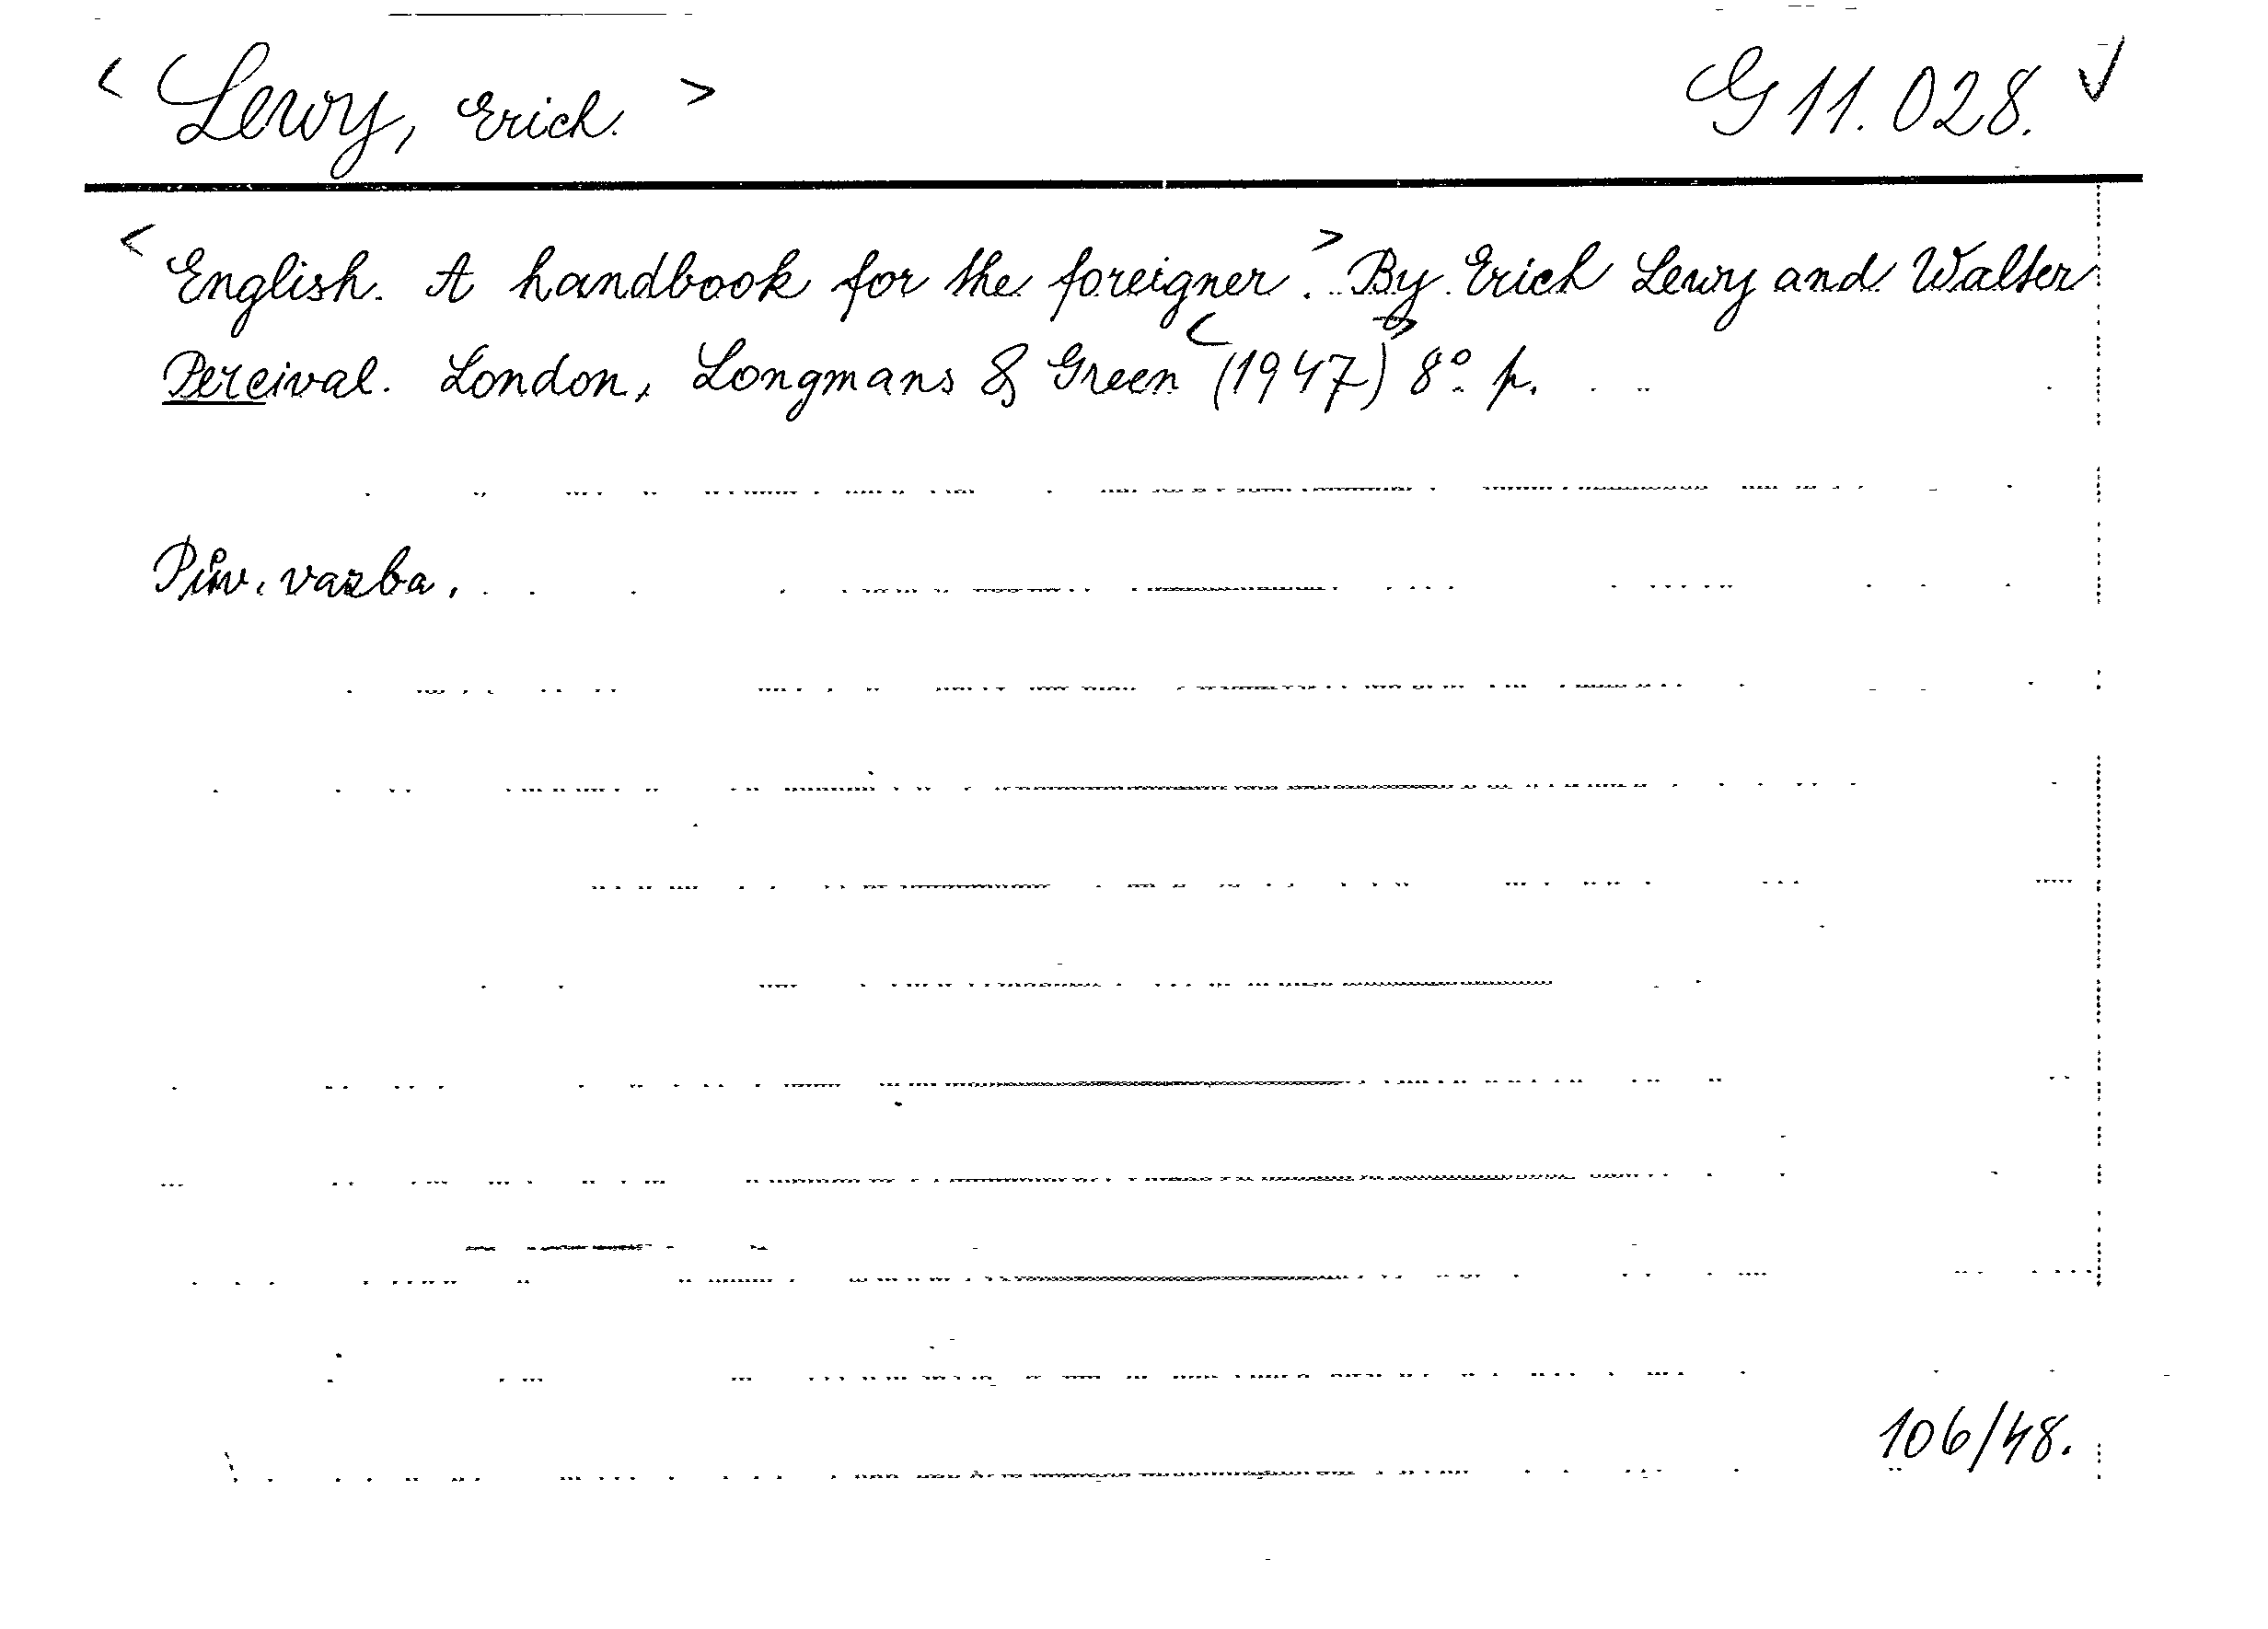 < Lewy, Erich. > G 11.028. ✓
< English. A handbook for the foreigner. > By Erich Lewy and Walter
Percival. London, Longmans & Green < (1947) > 8° p.
Pův. vazba.
106/48.